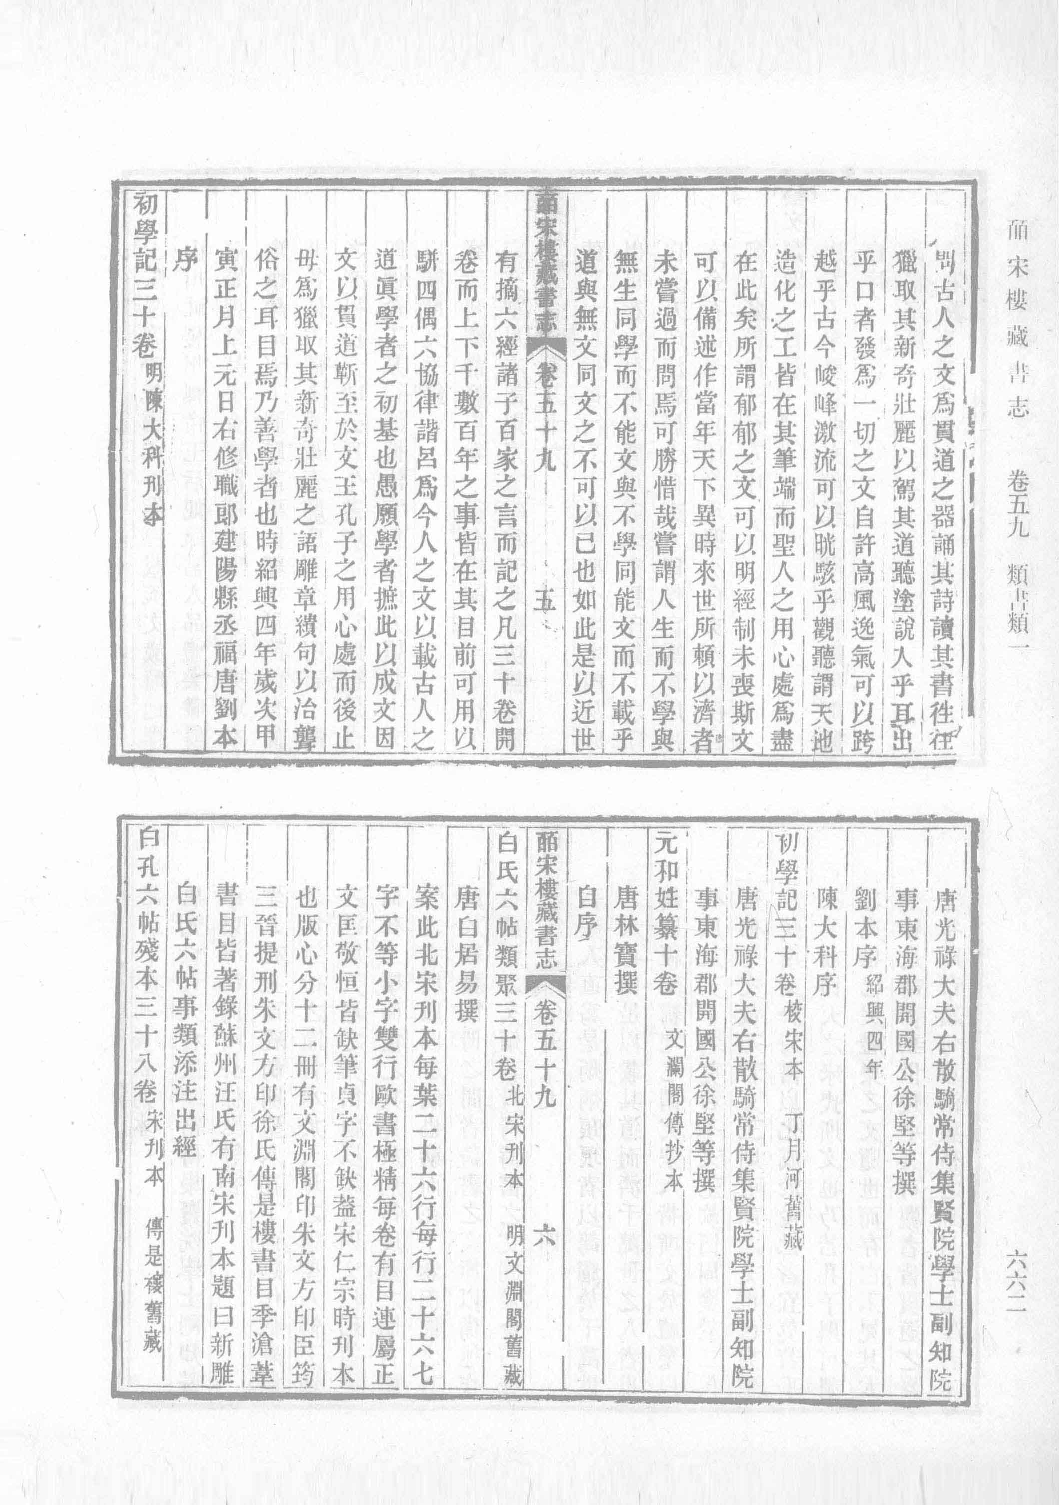 皕宋樓藏書志　卷五九　類書類一
六六二
聞古人之文爲貫道之器誦其詩讀其書徃徃
獵取其新奇壯麗以駕其道聽塗說入乎耳出
乎口者發爲一切之文自許高風逸氣可以跨
越乎古今峻峰激流可以晄駭乎觀聽謂天地
造化之工皆在其筆端而聖人之用心處爲盡
在此矣所謂郁郁之文可以明經制未喪斯文
可以備述作當年天下異時來世所賴以濟者
未嘗過而問焉可勝惜哉嘗謂人生而不學與
無生同學而不能文與不學同能文而不載乎
道與無文同文之不可以已也如此是以近世
皕宋樓藏書志　卷五十九　五
有摘六經諸子百家之言而記之凡三十卷開
卷而上下千數百年之事皆在其目前可用以
駢四偶六協律諧呂爲今人之文以載古人之
道眞學者之初基也愚願學者摭此以成文因
文以貫道靳至於文王孔子之用心處而後止
毋爲獵取其新奇壯麗之語雕章繢句以治聾
俗之耳目焉乃善學者也時紹興四年歲次甲
寅正月上元日右修職郎建陽縣丞福唐劉本
序
初學記三十卷明陳大科刋本
唐光祿大夫右散騎常侍集賢院學士副知院
事東海郡開國公徐堅等撰
劉本序紹興四年
陳大科序
初學記三十卷校宋本　丁月河舊藏
唐光祿大夫右散騎常侍集賢院學士副知院
事東海郡開國公徐堅等撰
元和姓纂十卷　文瀾閣傳抄本
唐林寶撰
自序
皕宋樓藏書志　卷五十九　六
白氏六帖類聚三十卷北宋刋本　明文淵閣舊藏
唐白居易撰
案此北宋刊本每葉二十六行每行二十六七
字不等小字雙行歐書極精每卷有目連屬正
文匡敬恒皆缺筆貞字不缺葢宋仁宗時刋本
也版心分十二冊有文淵閣印朱文方印臣筠
三晉提刑朱文方印徐氏傳是樓書目季滄葦
書目皆著錄蘇州汪氏有南宋刋本題曰新雕
白氏六帖事類添注出經
白孔六帖殘本三十八卷宋刋本　傳是樓舊藏